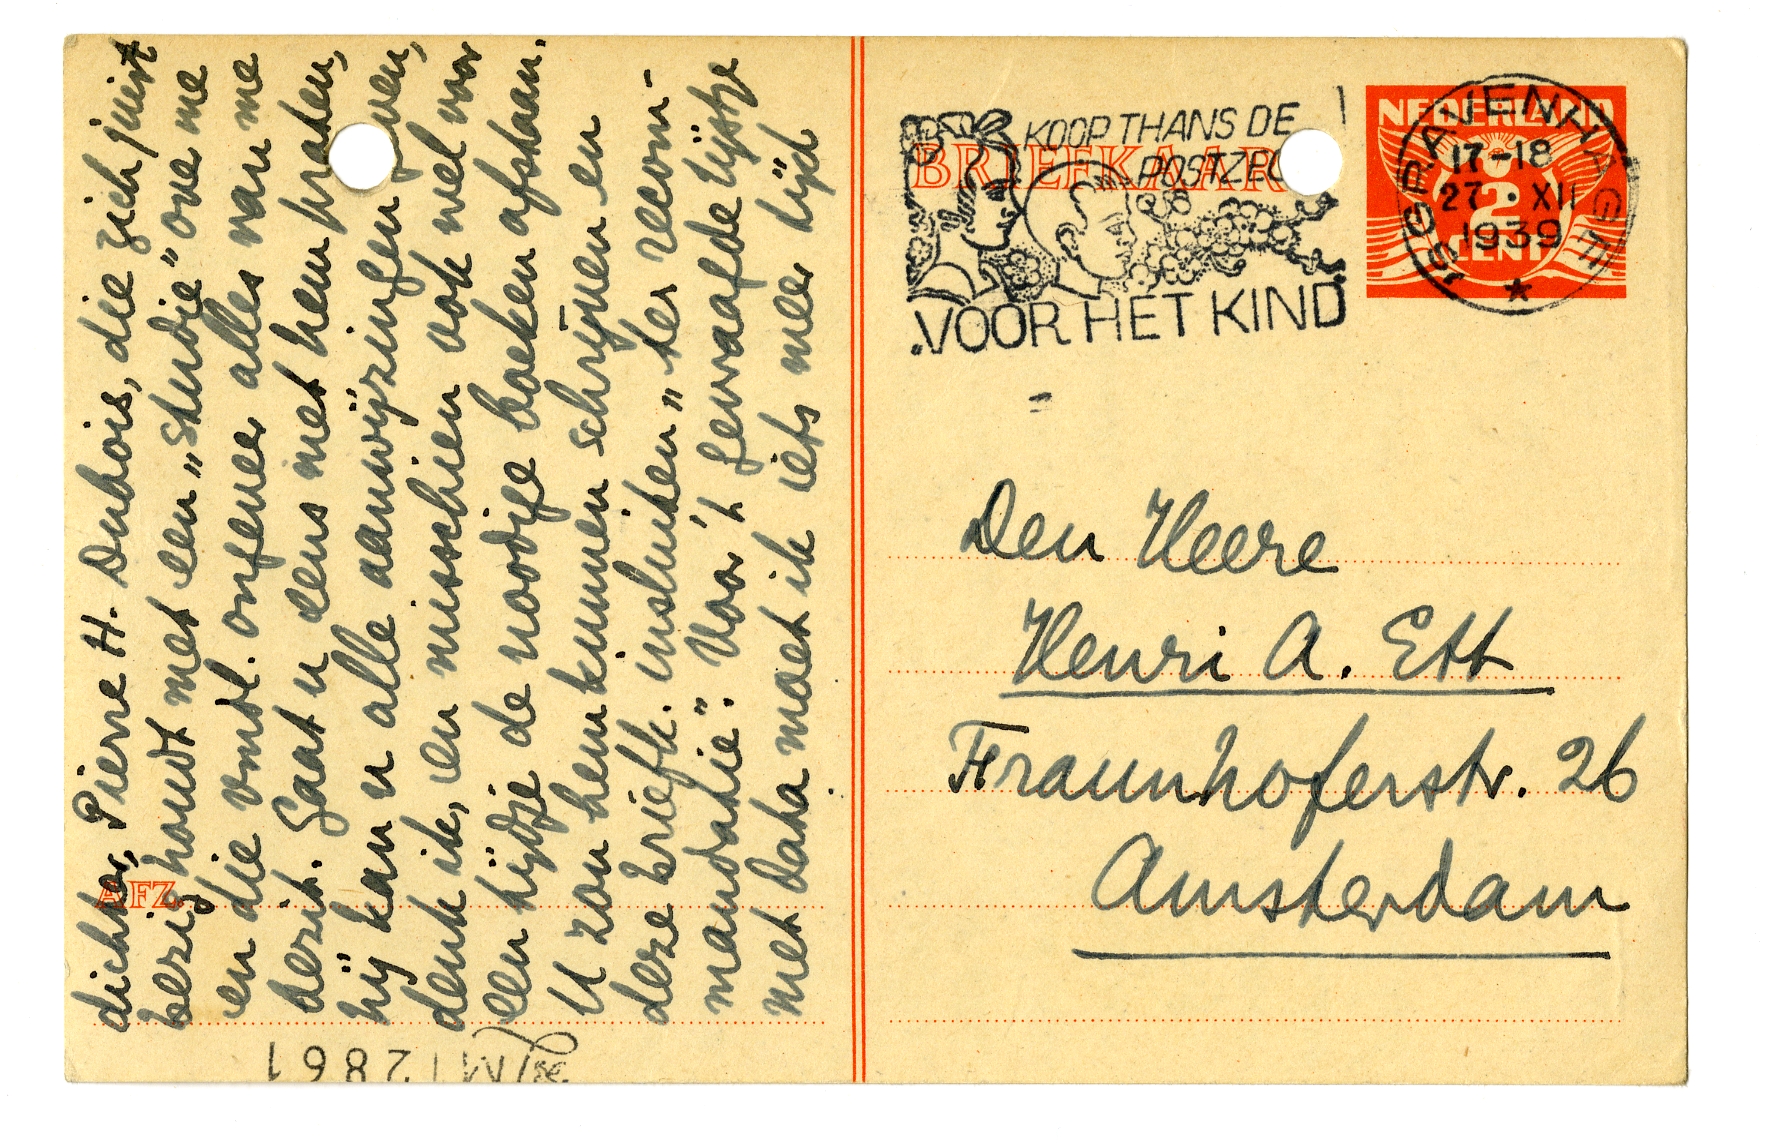 dichter, Pierre H. Dubois, die zich juist
bezig houdt met een „studie” over me
en die vindt ongeveer alles van me
bezit. Gaat u eens met hem praten,
hij kan u alle aanwijzingen geven,
denk ik, en misschien ook wel voor
een tijdje de noodige boeken afstaan.
U zou hem kunnen schrijven en
deze briefk. insluiten „ter recom-
mandatie”. Voor 't gevraagde lijstje
met data moet ik iets meer tijd
AFZ.
BRIEFKAAR
KOOP THANS DE
POSTZEG
VOOR HET KIND
NEDERLAND
2
CENT
'S GRAVENHAGE
17-18
27 XII
1939
Den Heere
Henri A. Ett
Fraunhoferstr. 26
Amsterdam